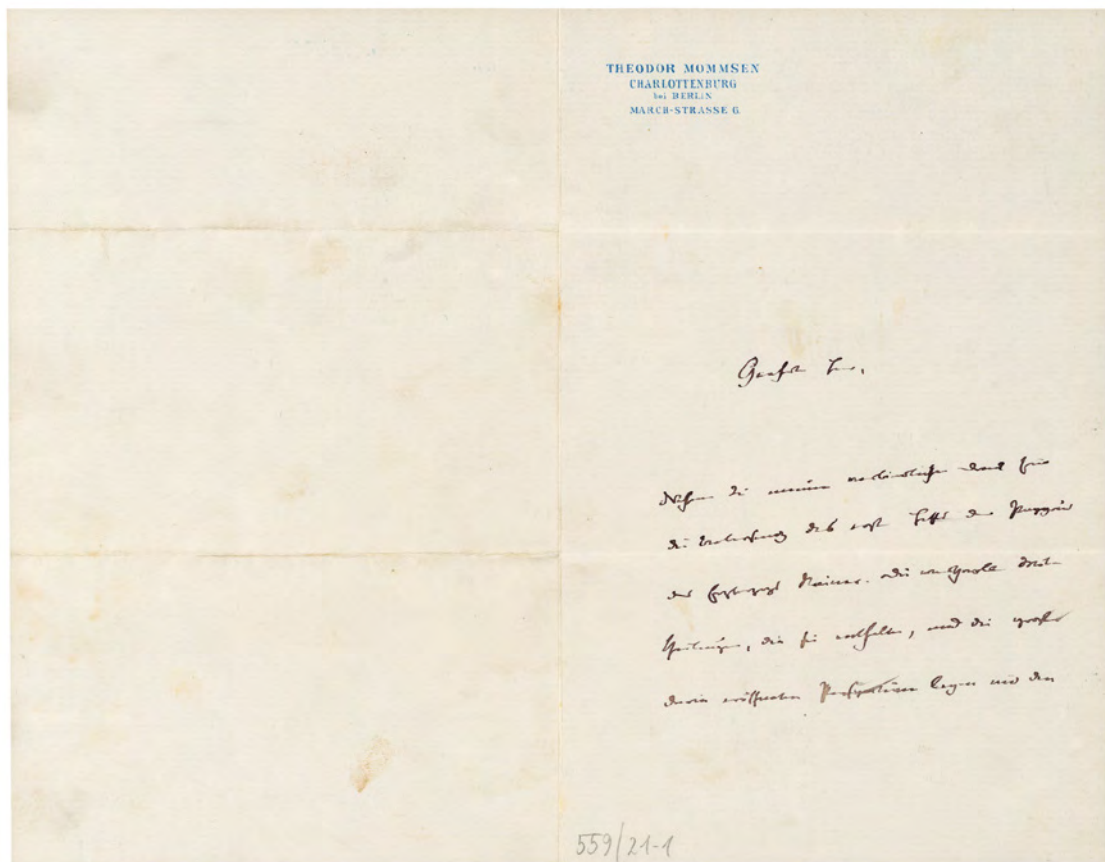 THEODOR MOMMSEN
CHARLOTTENBURG
bei BERLIN
MARCH-STRASSE 6.
Geehrter Herr,
Nehmen Sie meinen verbindlichen Dank für
die Uebersendung des erst Heftes der Papyrus
des Erzherzogs Rainer. Die werthvollen Mit-
theilungen, die sie enthalten, und die große
darin eröffneten Perspektiven legen uns den
559/21-1